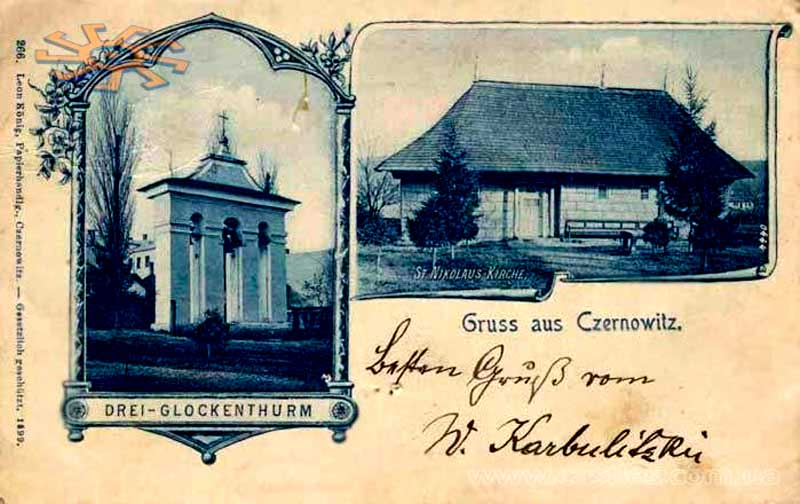 266. Leon König, Papierhandlg., Czernowitz. — Gesetzlich geschützt. 1899.
DREI-GLOCKENTHURM
St. NIKOLAUS-KIRCHE
Gruss aus Czernowitz.
Besten Gruß vom
W. Karbulitzki